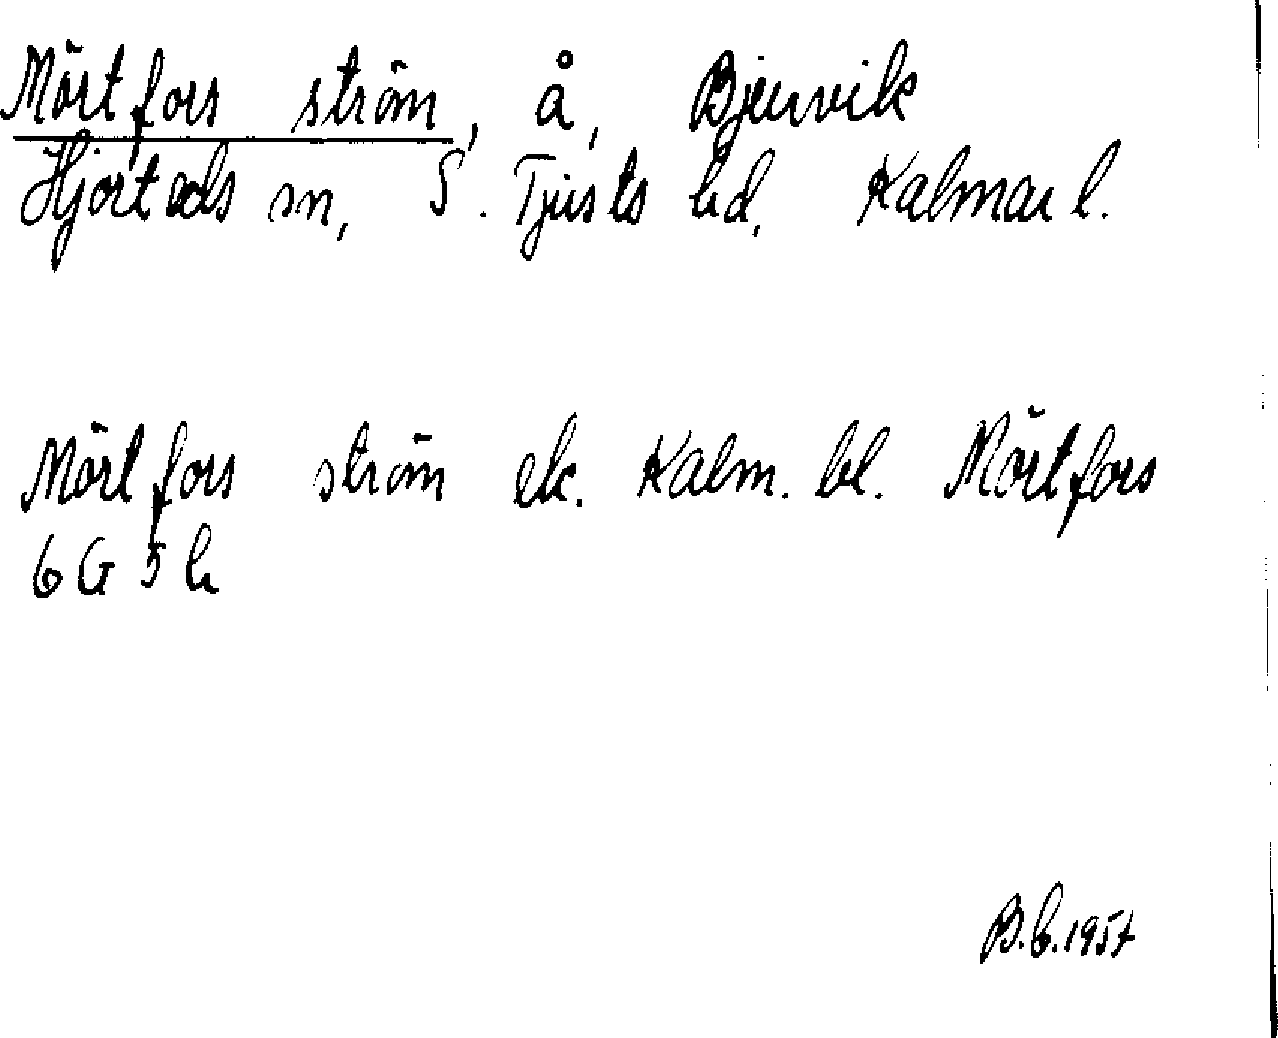 Mörtfors ström, å, Bjurvik
Hjorteds sn, S. Tjusts hd, Kalmar l.
Mörtfors ström ek. Kalm. bl. Mörtfors
6 G 5 h
1957